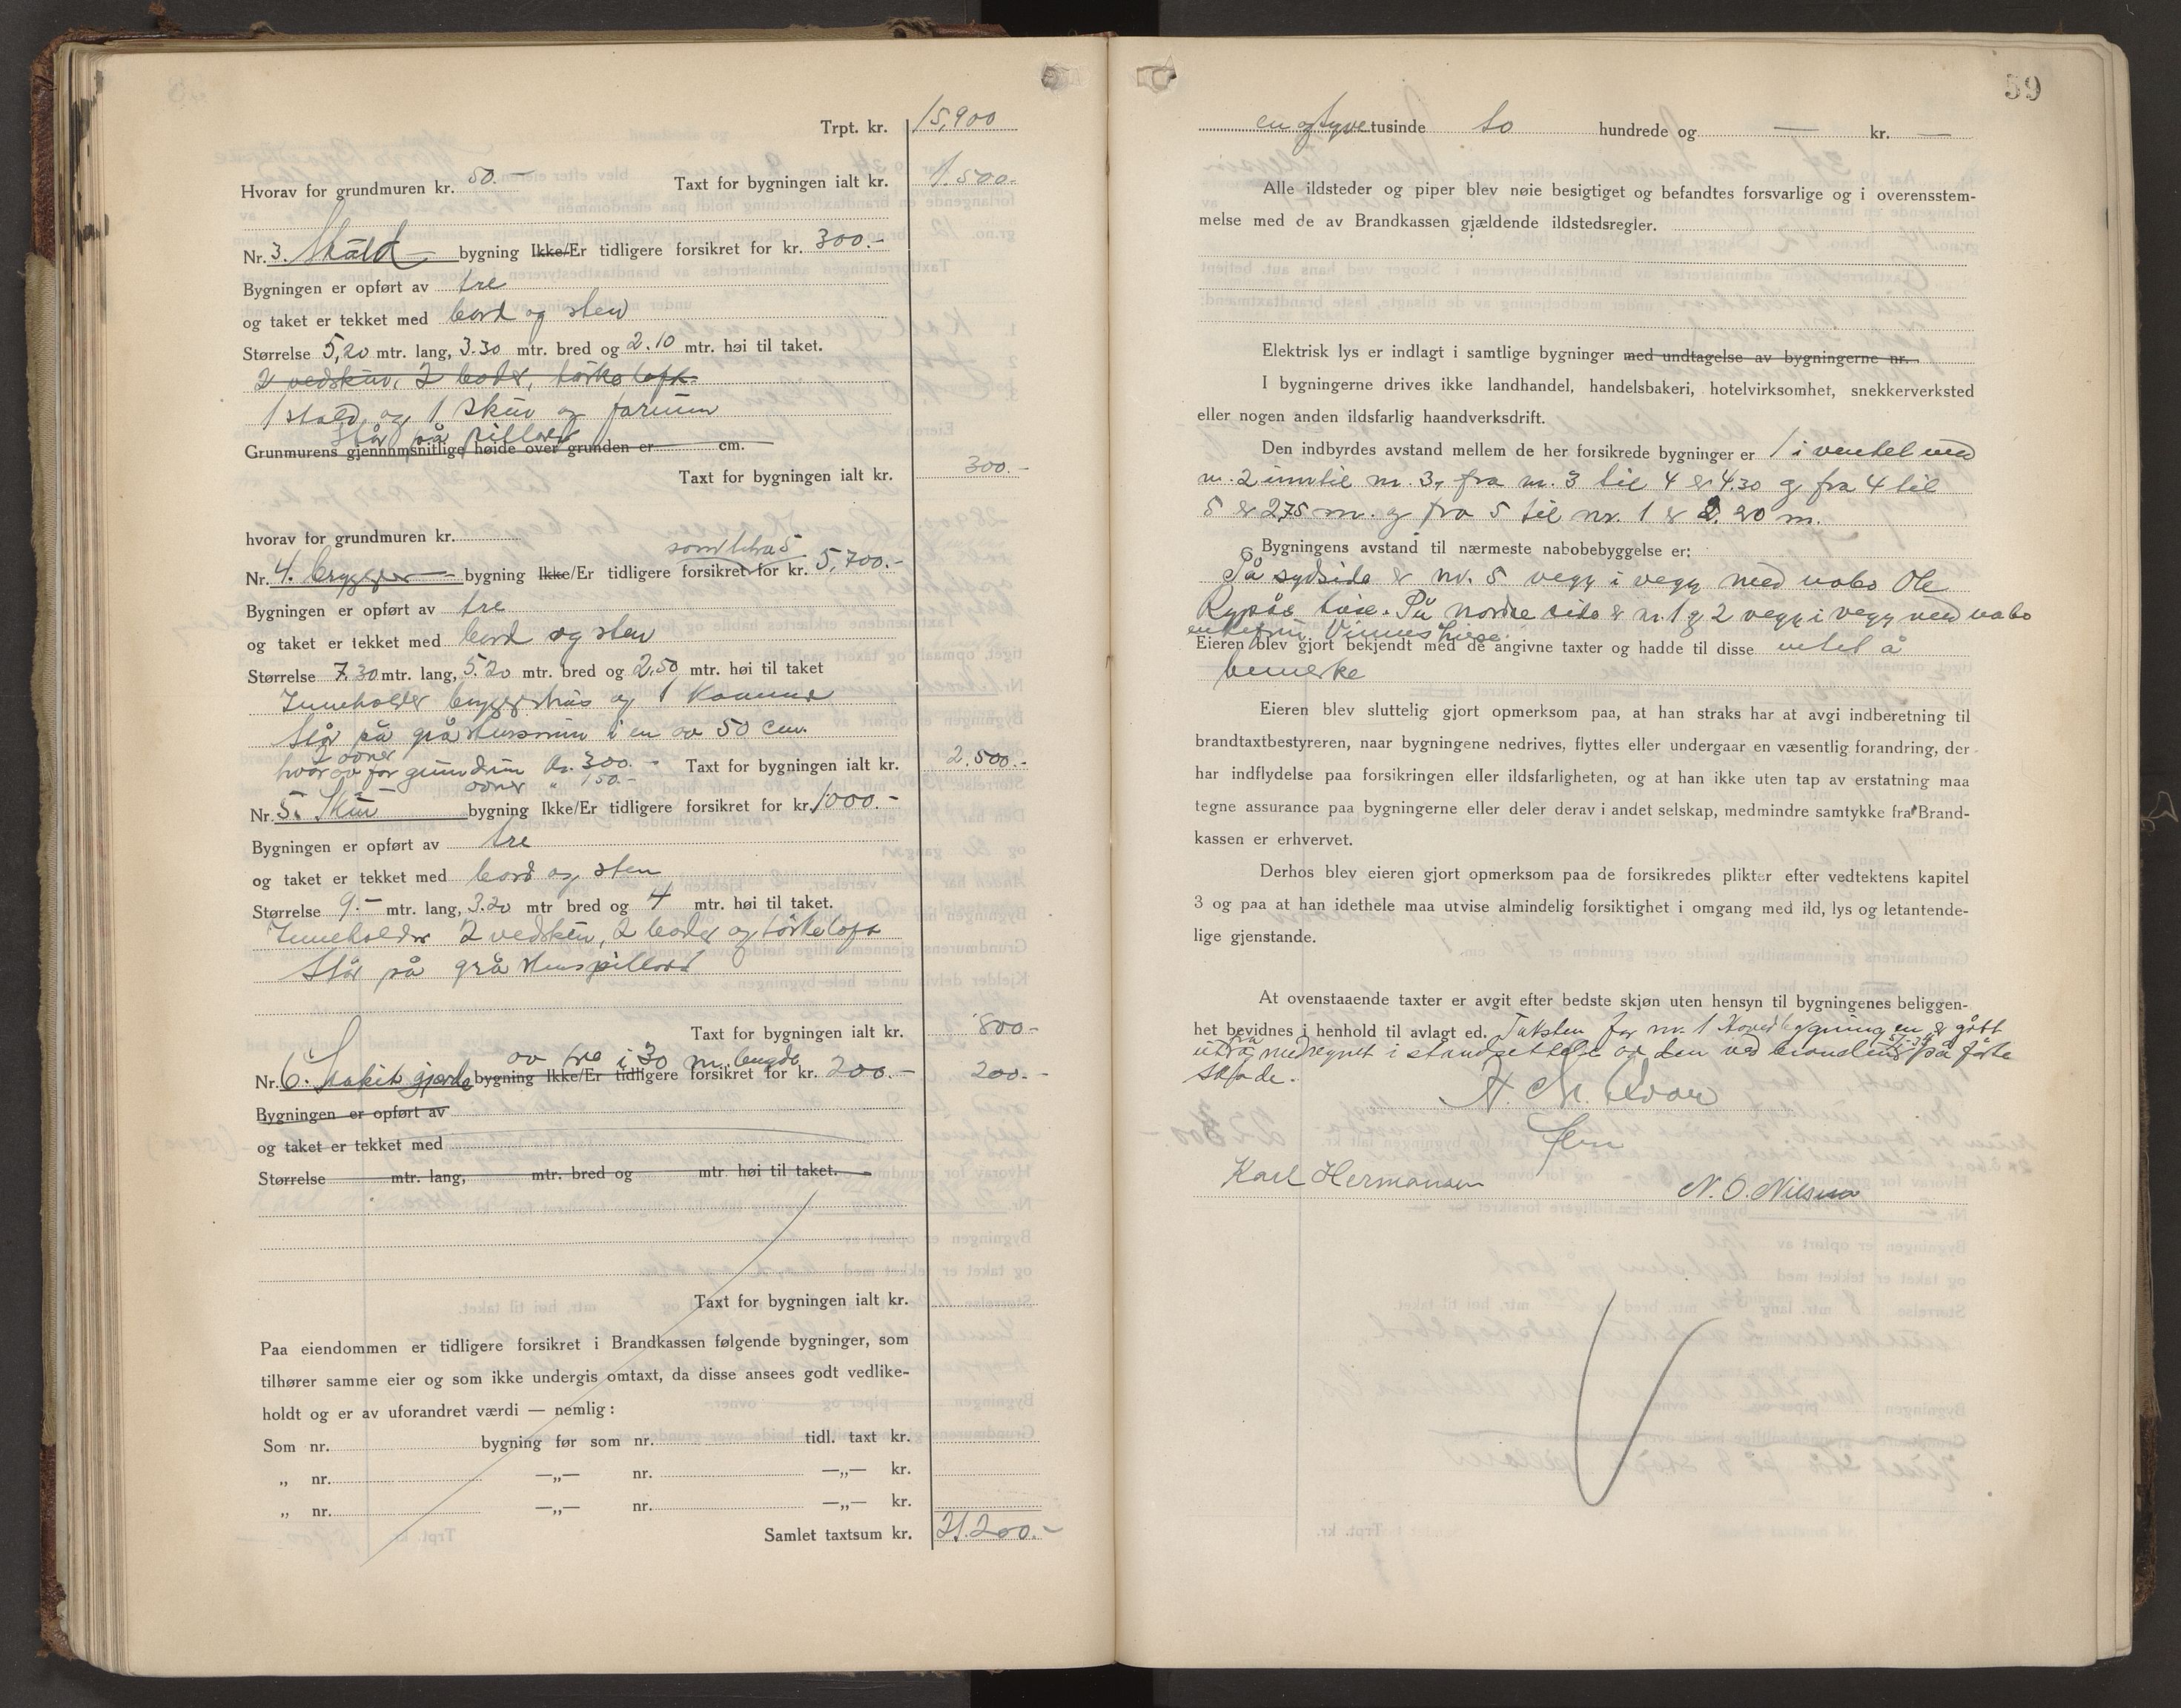 Trpt. kr. 15,900
Hvorav for grundmuren kr. 50.- Taxt for bygningen ialt kr. 1.500-
Nr. 3. Stald bygning Ikke/Er tidligere forsikret for kr. 300.-
Bygningen er opført av tre
og taket er tekket med bord og sten
Størrelse 5,20 mtr. lang, 3.30 mtr. bred og 2.10 mtr. høi til taket.
2 vedskur, 2 boder, törkeloft
1 stald og 1 skur og farium
Står på pillarer
Grunmurens gjennmsnitlige høide over grunden er cm.
Taxt for bygningen ialt kr. 300.-
hvorav for grundmuren kr.
som uthus
Nr. 4. brygger bygning Ikke/Er tidligere forsikret for kr. 5,700.-
Bygningen er opført av tre
og taket er tekket med bord og sten
Størrelse 7.30 mtr. lang, 5.20 mtr. bred og 2,50 mtr. høi til taket
Inneholder bryggerhus og 1 kammer
Står på gråstensmur i en av 50 cm.
2 ovner
hvorav for grundmur kr. 300.- Taxt for bygningen ialt kr. 2.500.-
ovner " 150.-
Nr. 5. Skur bygning Ikke/Er tidligere forsikret for kr. 1000.-
Bygningen er opført av tre
og taket er tekket med bord og sten
Størrelse 9.- mtr. lang, 3.20 mtr bred og 4 mtr. høi til taket.
Inneholder 2 vedskur, 2 boder og törkeloft
Står på gråstenspillarer
Taxt for bygningen ialt kr. 800-
av tre i 30 m. lengde
Nr. 6. Stakit gjerde bygning Ikke/Er tidligere forsikret for kr. 200.- 200.-
Bygningen er opført av
og taket er tekket med
Størrelse mtr. lang, mtr. bred og mtr. høi til taket.
Taxt for bygningen ialt kr.
Paa eiendommen er tidligere forsikret i Brandkassen følgende bygninger, som
tilhører samme eier og som ikke undergis omtaxt, da disse ansees godt vedlike-
holdt og er av uforandret værdi — nemlig:
Som nr. bygning før som nr. tidl. taxt kr.
„ nr. —„— nr. —„— kr.
„ nr. —„— nr. —„— kr.
Samlet taxtsum kr. 21.200.-
59
en og tyve tusinde to hundrede og — kr. —
Alle ildsteder og piper blev nøie besigtiget og befandtes forsvarlige og i overensstem-
melse med de av Brandkassen gjældende ildstedsregler.
Elektrisk lys er indlagt i samtlige bygninger med undtagelse av bygningerne nr.
I bygningerne drives ikke landhandel, handelsbakeri, hotelvirksomhet, snekkerverksted
eller nogen anden ildsfarlig haandverksdrift.
Den indbyrdes avstand mellem de her forsikrede bygninger er 1 i vinkel med
nr. 2 inntil nr. 3, fra nr. 3 til 4 er 4.30 og fra 4 til
5 er 2,75 m. og fra 5 til nr. 1 er 2.20 m.
Bygningens avstand til nærmeste nabobebyggelse er:
På sydside er nr. 5 vegg i vegg med nabo Ole
Rypås huse. På nordre side er nr. 1 og 2 vegg i vegg med nabo
enkefru Vinnes huse.
Eieren blev gjort bekjendt med de angivne taxter og hadde til disse intet å
bemerke
Eieren blev sluttelig gjort opmerksom paa, at han straks har at avgi indberetning til
brandtaxtbestyreren, naar bygningene nedrives, flyttes eller undergaar en væsentlig forandring, der
har indflydelse paa forsikringen eller ildsfarligheten, og at han ikke uten tap av erstatning maa
tegne assurance paa bygningerne eller deler derav i andet selskap, medmindre samtykke fra Brand-
kassen er erhvervet.
Derhos blev eieren gjort opmerksom paa de forsikredes plikter efter vedtektens kapitel
3 og paa at han idethele maa utvise almindelig forsiktighet i omgang med ild, lys og letantende-
lige gjenstande.
At ovenstaaende taxter er avgit efter bedste skjøn uten hensyn til bygningenes beliggen-
het bevidnes i henhold til avlagt ed. Taksten for nr. 1 Hovedbygningen er gått
ut fra medregnet i standsettelse av den ved branden på förte
skade.
Karl Hermansen N. O. Nilsen